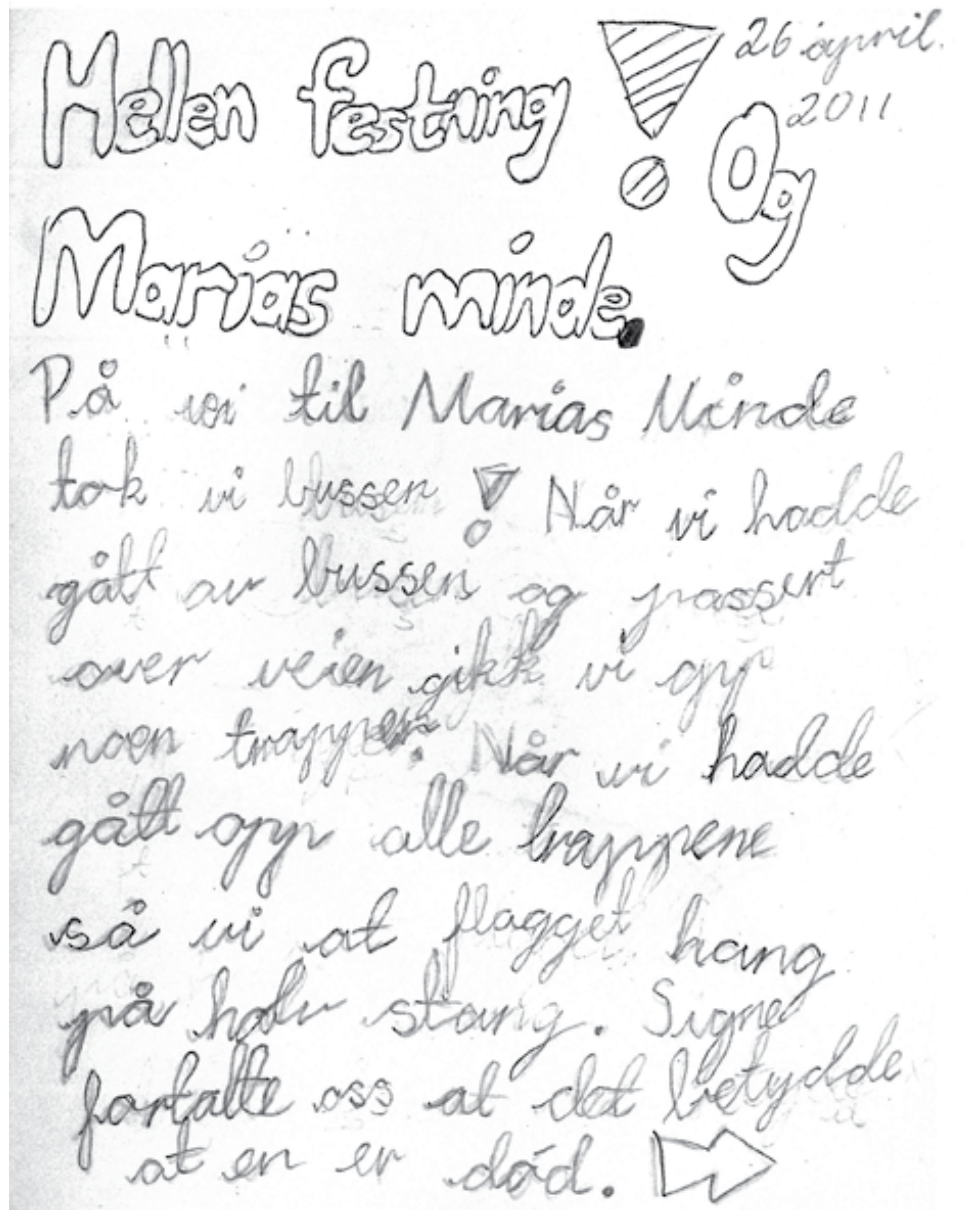 Hellen festning! Og
26 april.
2011
Marias minde.
På vei til Marias Minde
tok vi bussen! Når vi hadde
gått av bussen og passert
over veien gikk vi opp
noen trapper. Når vi hadde
gått opp alle trappene
så vi at flagget hang
på halv stang. Signe
fortalte oss at det betydde
at en er død.